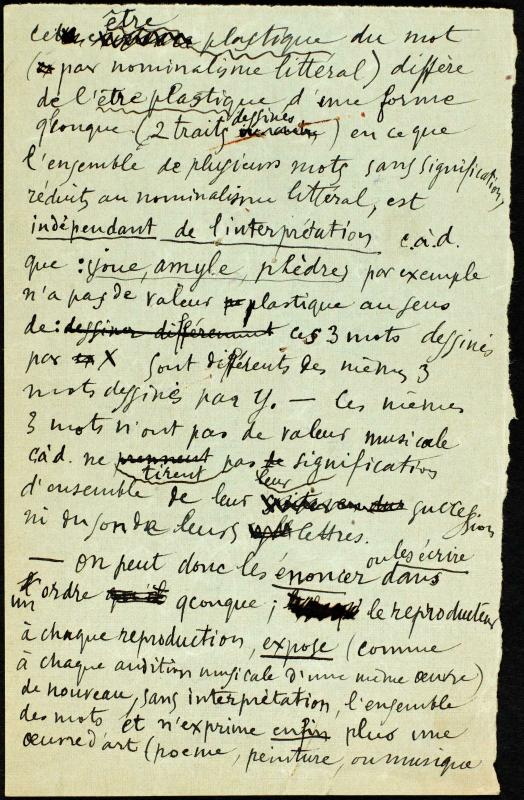 être
cet plastique du mot
(par nominalisme littéral) diffère
de l'être plastique d'une forme
dessinés
qconque (2 traits) en ce que
l'ensemble de plusieurs mots sans signification,
réduits au nominalisme littéral, est
indépendant de l'interprétation c.à.d.
que : joue, amyle, phèdre, par exemple
n'a pas de valeur plastique au sens
de : dessiner différemment ces 3 mots dessinés
par X sont différents des mêmes 3
mots dessinés par Y. — Ces mêmes
3 mots n'ont pas de valeur musicale
càd. ne prennent pas de signification
tirent leur
d'ensemble de leur succession
ni du son de leurs lettres.
— On peut donc les énoncer ou les écrire dans
un ordre qconque ; le reproducteur
à chaque reproduction, expose (comme
à chaque audition musicale d'une même œuvre)
de nouveau, sans interprétation, l'ensemble
des mots et n'exprime enfin plus une
œuvre d'art (poème, peinture, ou musique